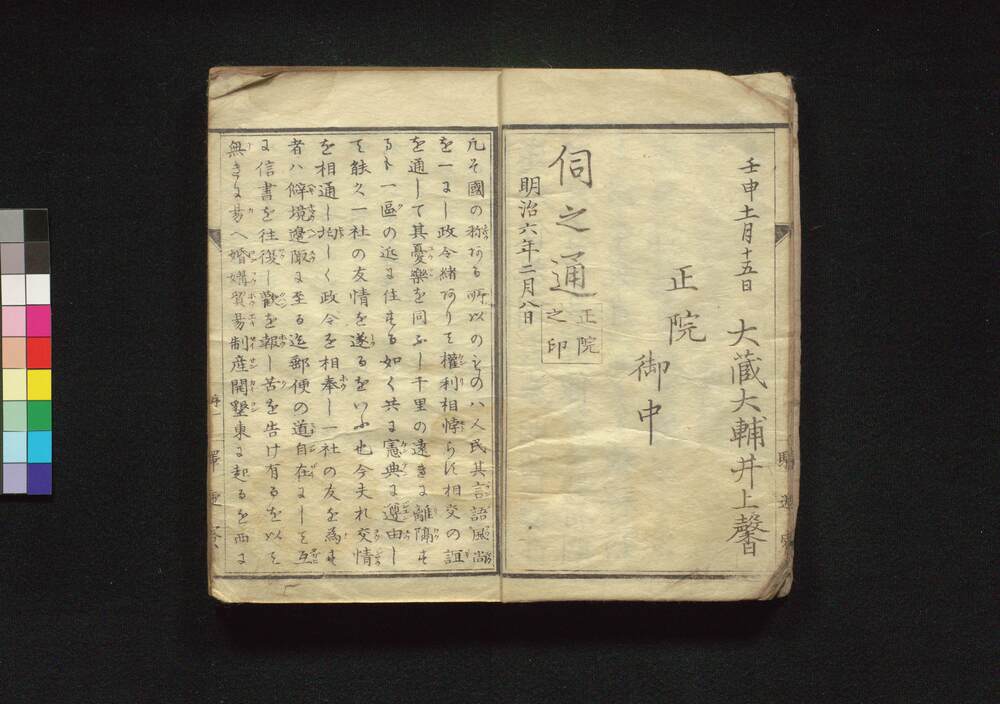 壬申十一月十五日 大蔵大輔井上馨
正院
御中
伺之通
正院
之印
明治六年二月八日
凡そ國の称ある所以のものハ人民其言語風尚
を一にし政令緒ありて權利相悖らす相交の誼
を通して其憂樂を同ふし千里の遠きに離隔す
るも一區の近に住する如く共に憲典に遵由し
て能く一社の友情を遂るをいふ也今夫れ交情
を相通し均しく政令を相奉し一社の友を為す
者ハ僻境邊陬に至る迄郵便の道自在にして互
に信書を往復し歡を報し苦を告け有るを以て
無きに易へ婚媾貿易制産開墾東に起るを西に
驛逓